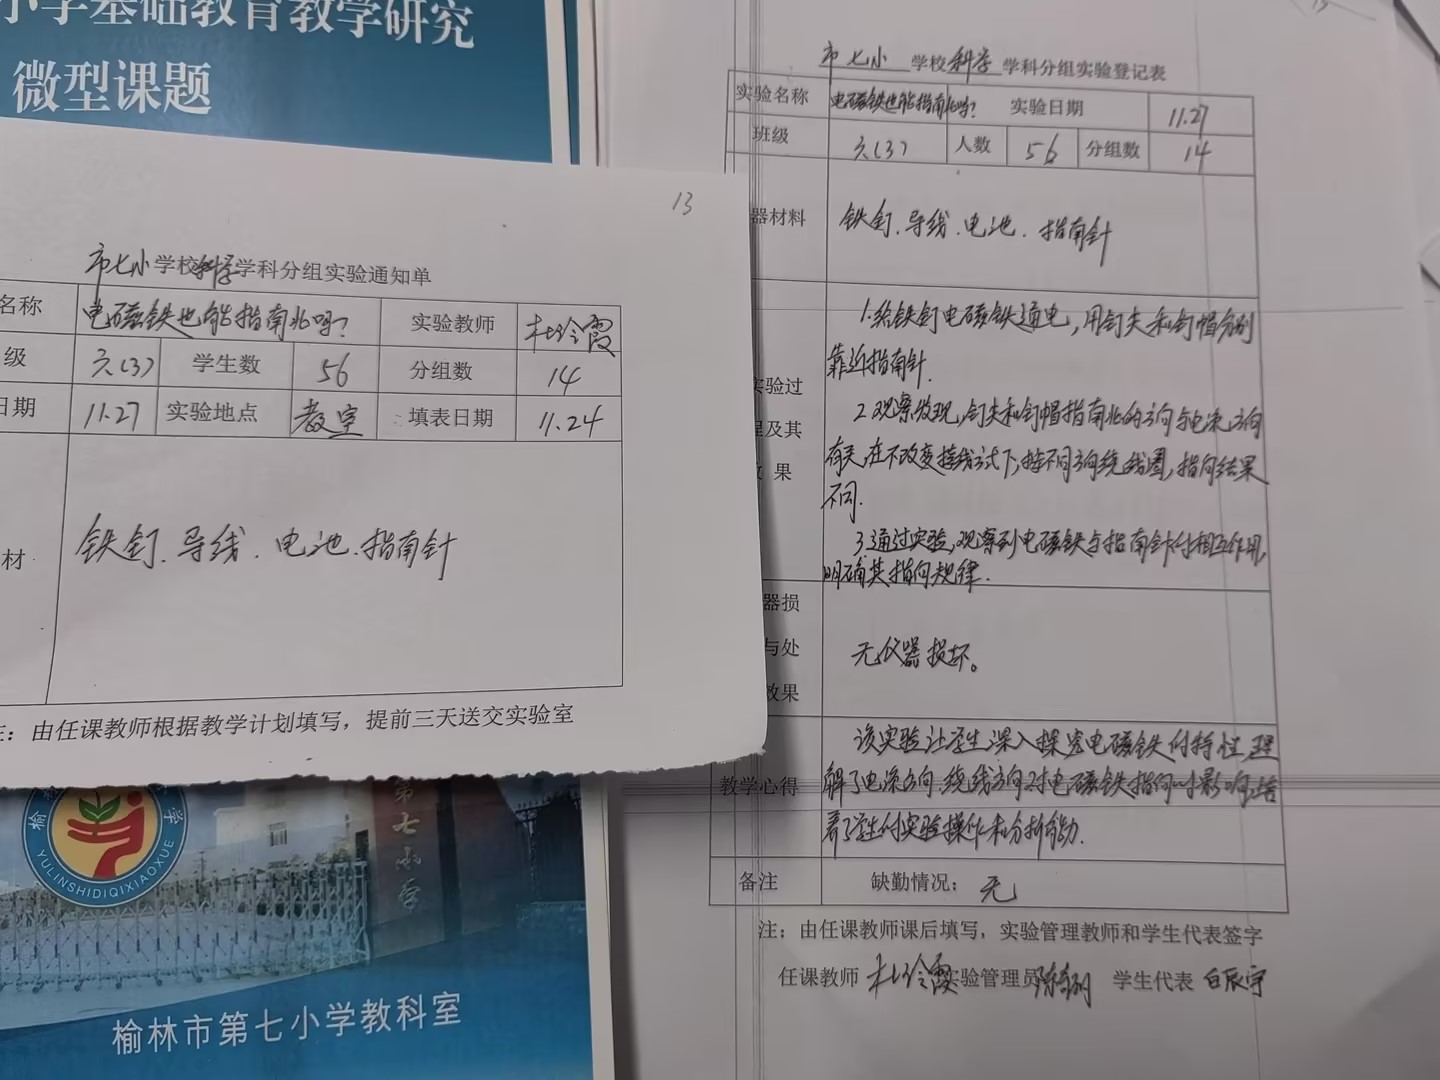 小学基础教育教学研究
微型课题
13
市七小学校科学学科分组实验通知单
名称 电磁铁也能指南北吗? 实验教师 杜玲霞
级 六(3) 学生数 56 分组数 14
日期 11.27 实验地点 教室 填表日期 11.24
材 铁钉、导线、电池、指南针
注：由任课教师根据教学计划填写，提前三天送交实验室
YULINSHIDIQIXIAOXUE
第七小学
榆林市第七小学教科室
13
市七小学校科学学科分组实验登记表
实验名称 电磁铁也能指南北吗? 实验日期 11.27
班级 六(3) 人数 56 分组数 14
器材料 铁钉、导线、电池、指南针
1.给铁钉电磁铁通电,用钉尖和钉帽分别
靠近指南针.
实验过
2.观察发现,钉尖和钉帽指南北的方向与电流方向
程及其
有关,在不改变接线方式下,按不同方向绕线圈,指向结果
效 果
不同.
3.通过实验,观察到电磁铁与指南针的相互作用,
明确其指向规律.
器损
与处 无仪器损坏。
效果
该实验让学生深入探究电磁铁的特性,理
教学心得 解了电流方向、绕线方向对电磁铁指向的影响,培
养了学生的实验操作和分析能力.
备注 缺勤情况： 无
注：由任课教师课后填写，实验管理教师和学生代表签字
任课教师 杜玲霞 实验管理员 学生代表 白辰宇